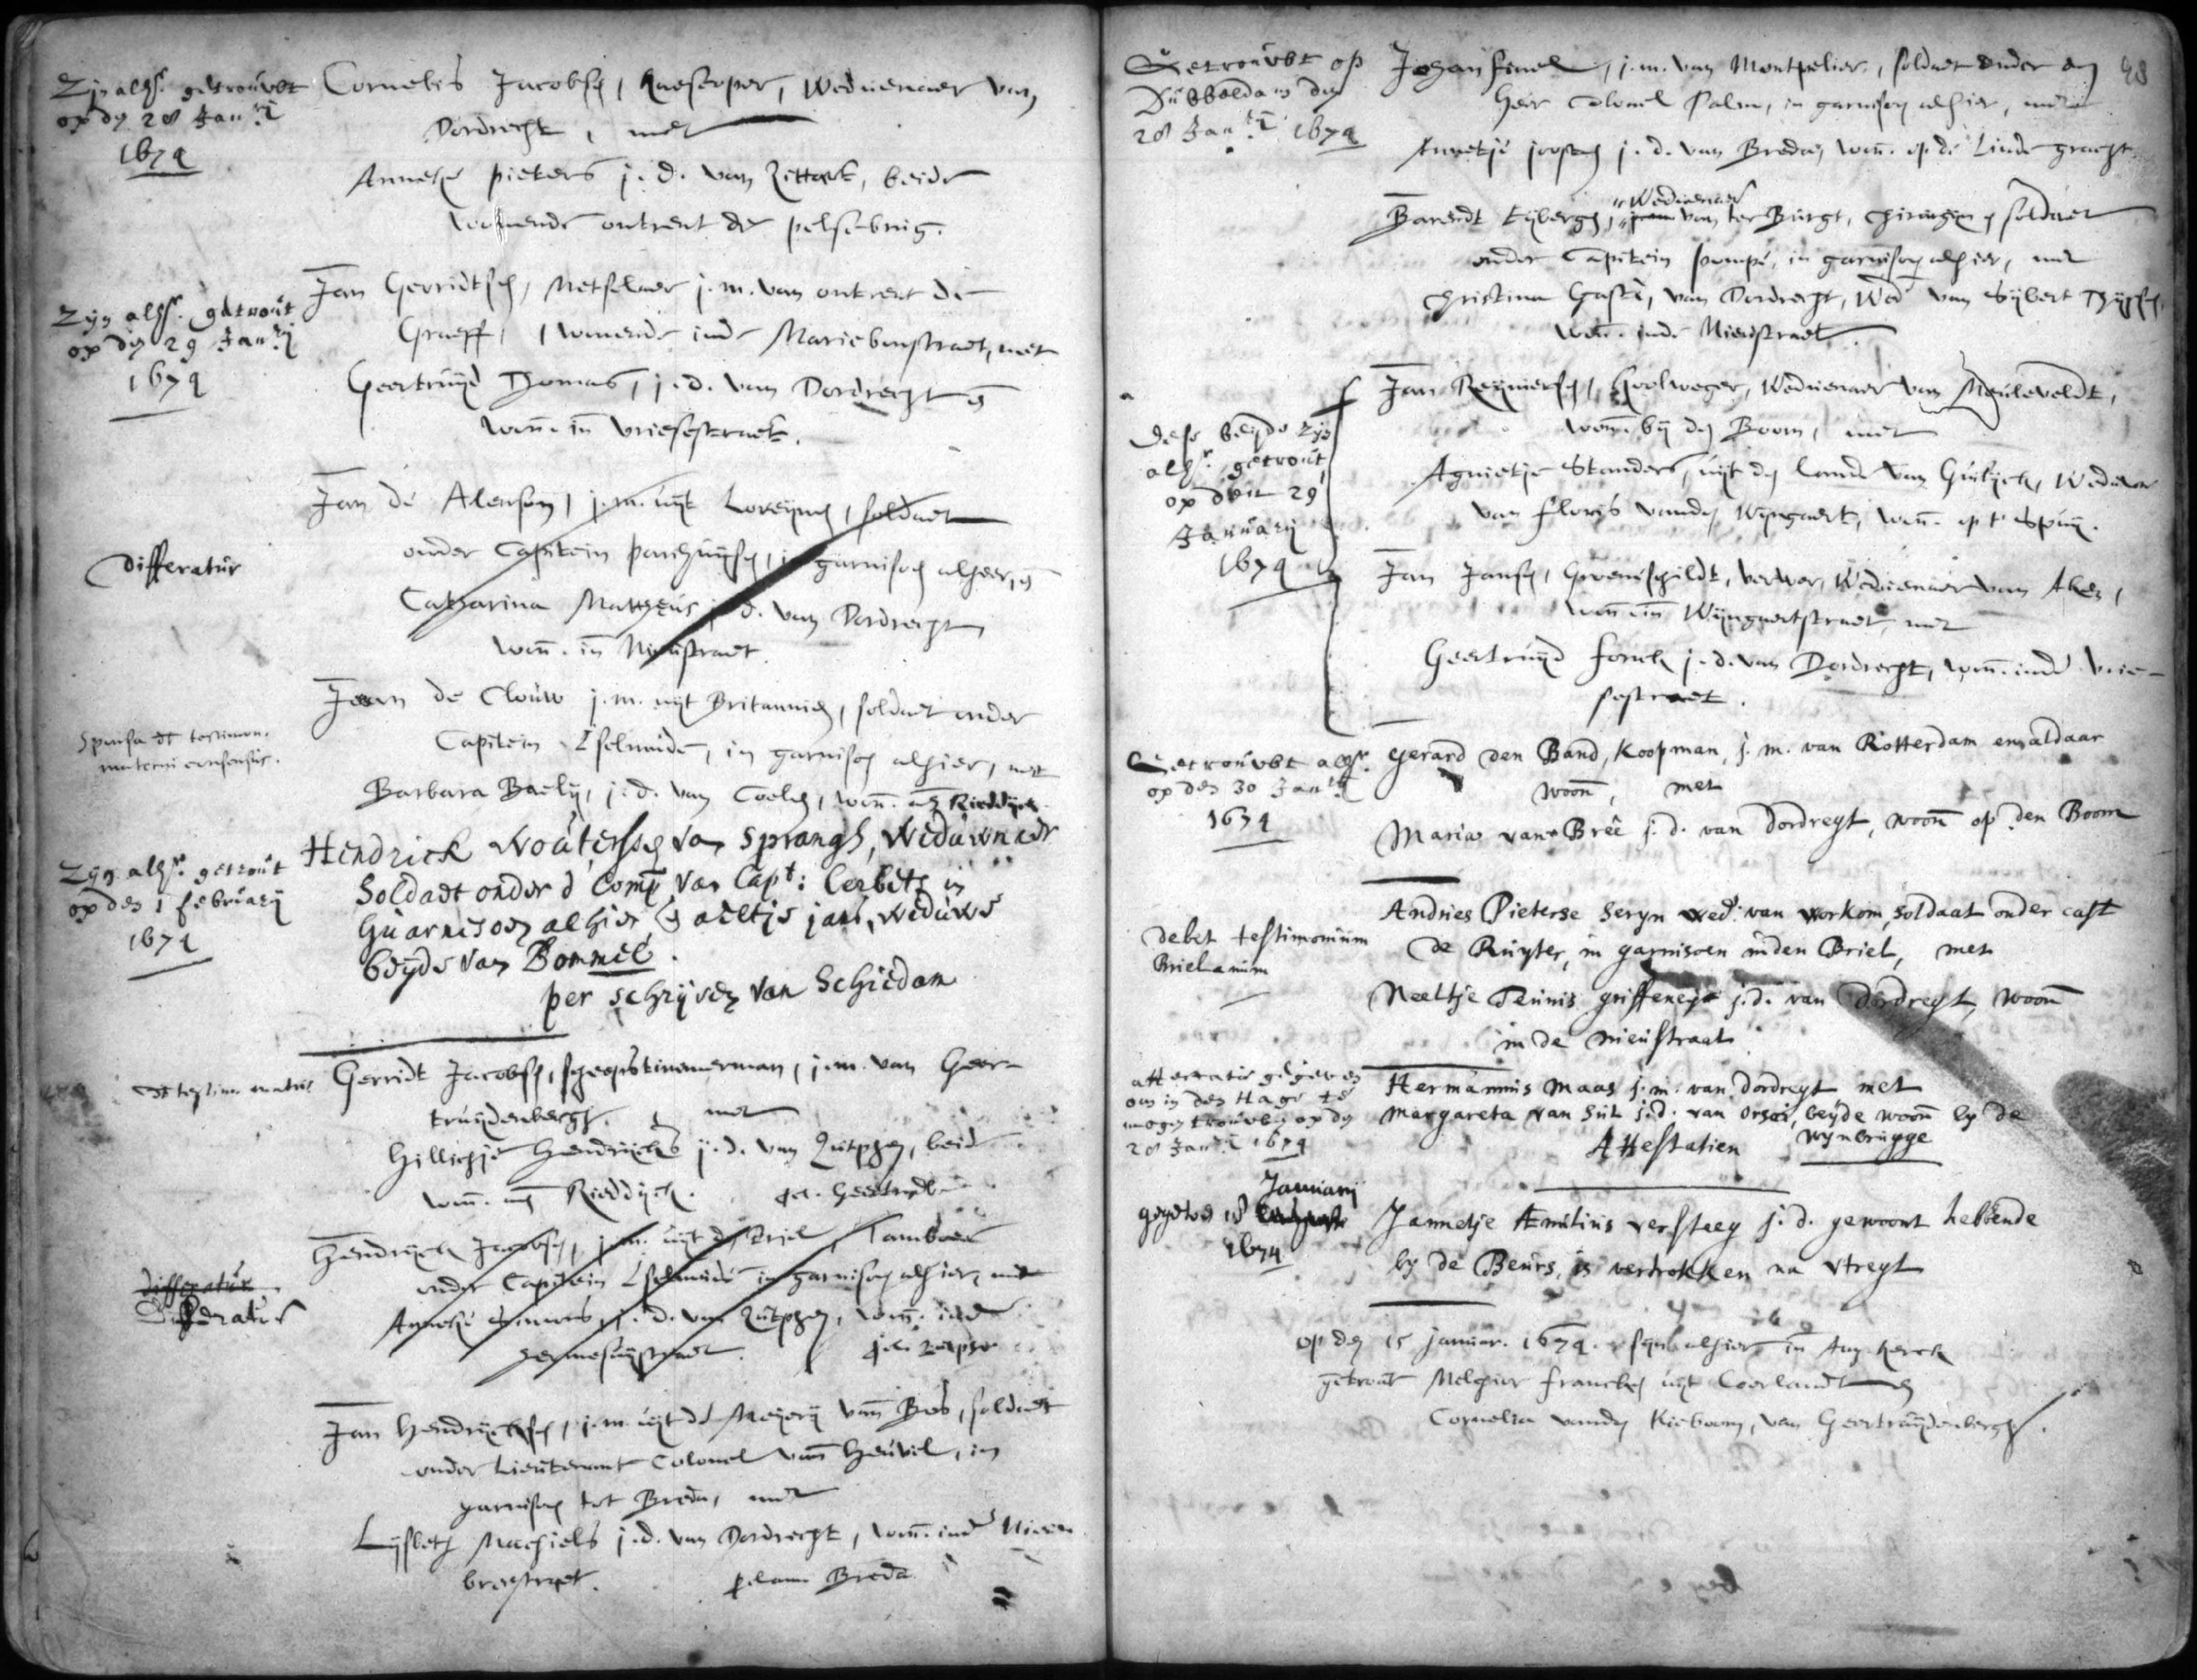 Zijn alhr. getrouwt
op dn 28 Janrij
1674
Cornelis Jacobsn, Weduenaer van
Dordrecht, met
Anneke pieters j.d. van Zittart, beide
woonende ontrent de pelsebrug.
Zijn alhr. getrout
op dn 29 Janrij
1674
Jan Gerridtsn, Metselaer j.m. van ontrent de
Graeff, wonende inde Mariebornstraet, met
Geertruijd Thomas, j.d. van Dordrecht
won. in Vriesestraet.
Differatur
Jan de Alenson, j.m. uijt Loreijnen, soldaet
onder Capitein, in garnison alhier, en
Catharina Mattheus j.d. van Dordrecht
won. in Nieustraet.
Sponsa dt testimon.
materni consensus.
Jean de Clouw j.m. uijt Britannien, soldaet onder
Capitein Iselmude, in garnison alhier, met
Barbara Baelij, j.d. van Coelen, won. aen Rieddijck.
Zijn alhr. getrout
op den 1 februarij
1674
Hendrick Woutersen van Sprangh, Weduwnaer
Soldaet onder d Comp. van Capt: Corbets in
Guarnisoen alhier, en aeltje jans, Weduwe
beyde van Bommel.
per schrijven van Schiedam
dt testim. matris
Gerridt Jacobsn, scheepstimmerman, j.m. van Geer-
truijdenbergh, met
Hillichje Hendrijcks j.d. van Zutphen, beide
won. aen Rieddijck. Geertruidb.
differatur
Differatur
Hendrijck Jacobsn, j.m. uijt den Briel, Tamboer
onder Capitein Iselmude in garnison alhier, met
Anneke j.d. van Zutphen, won. inde
. Zutphen
Jan Hendrijcksen, j.m. uijt de Meijerij vann Bos, soldaet
onder Lieutenant Colonel vann Heuvel, in
garnison tot Breda, met
Lijsbeth Machiels j.d. van Dordrecht, won. inde Nieuw
breestraet. Breda
48
Getrouwt op
Dubbeldam den
28 Janrij 1674
Johan, j.m. van Montpelier, soldaet onder den
Heer Colonel Palm, in garnison alhier, met
Annetje joosten j.d. van Breda, won. op de Linde gracht
Weduenaer
Barendt, van ter Burgt, soldaet
onder Capitein pompe, in garnison alhier, met
Christina Gaste, van Dordrecht, Wed van Sijbert Thijssen,
won. inde Nieustraet.
Dese beijde zijn
alhr. getrout
op den 29
Januarij
1674
Jan Reijniersen, Weduenaer van Meuleveldt,
won. bij den Boom, met
Agnietje Standers, uijt den lande van Gulijck, Weduwe
van floris vanden Wijngaert, won. op t Spuij.
Jan Jansen, Groenschildt, verwer, Weduenaer van Aken,
won. inn Wijngaertstraet, met
Geertruijd fonck j.d. van Dordrecht, won. inde Vrie-
sestraet.
Getrouwt alhr.
op den 30 Janrij
1674
Gerard den Band, Koopman, j.m. van Rotterdam en aldaar
woon, met
Maria van Brée j.d. van Dordregt, woon op den Boom
Debet testimonium
Brielanum
Andries Pieterse Seryn wed: van workom, soldaat onder capt
de Ruyter, in garnisoen inden Briel, met
Neeltje Teunis griffeneys j.d. van Dordregt, woon
in de nieustraat
attestatie gegeven
om in den Hage te
mogen trouwen op dn
28 Janrij 1674
Hermannus Maas j.m. van Dordregt met
Margareta van Sul j.d. van Orsoi, beyde woon by de
wynbrugge
Attestatien
Januarij
gegeven 18
1674
Jannetje Æmilius versteeg j.d. gewoont hebbende
by de Beurs, is vertrokken na Utregt
op den 15 januar. 1674. sijn alhier in Aug. kerck
getrout Melchior francken uijt Coerlandt en
Cornelia vanden Kieboom, van Geertruijdenbergh.